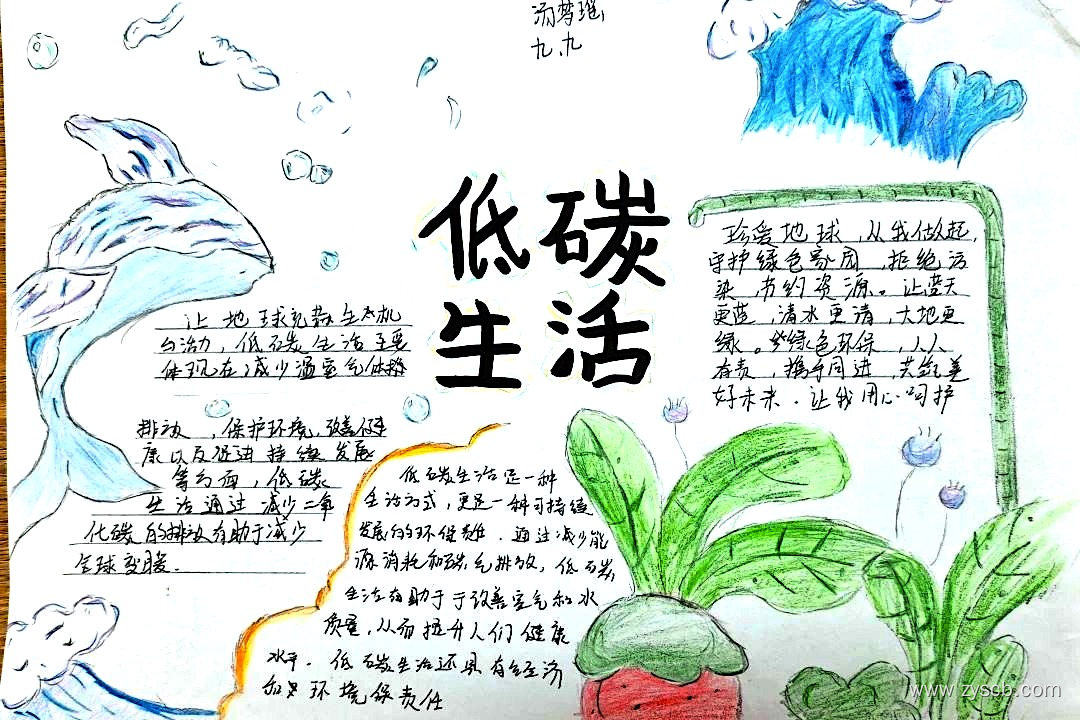 汤梦瑶
九.九
低碳
生活
让地球充满生态机
与活力，低碳生活主要
体现在减少温室气体
排放，保护环境，改善健
康以及促进持续发展
等方面，低碳
生活通过减少二氧
化碳的排放有助于减少
全球变暖．
珍爱地球，从我做起，
守护绿色家园，拒绝污
染，节约资源。让蓝天
更蓝，清水更清，大地更
绿。绿色环保，人人
有责，携手同进，共绘美
好未来．让我用心呵护
低碳生活是一种
生活方式，更是一种可持续
发展的环保责任．通过减少能
源消耗和碳气排放，低碳
生活有助于改善空气和水
质量，从而提升人们健康
水平．低碳生活还具有经济
和环境保责任
www.zyscb.com